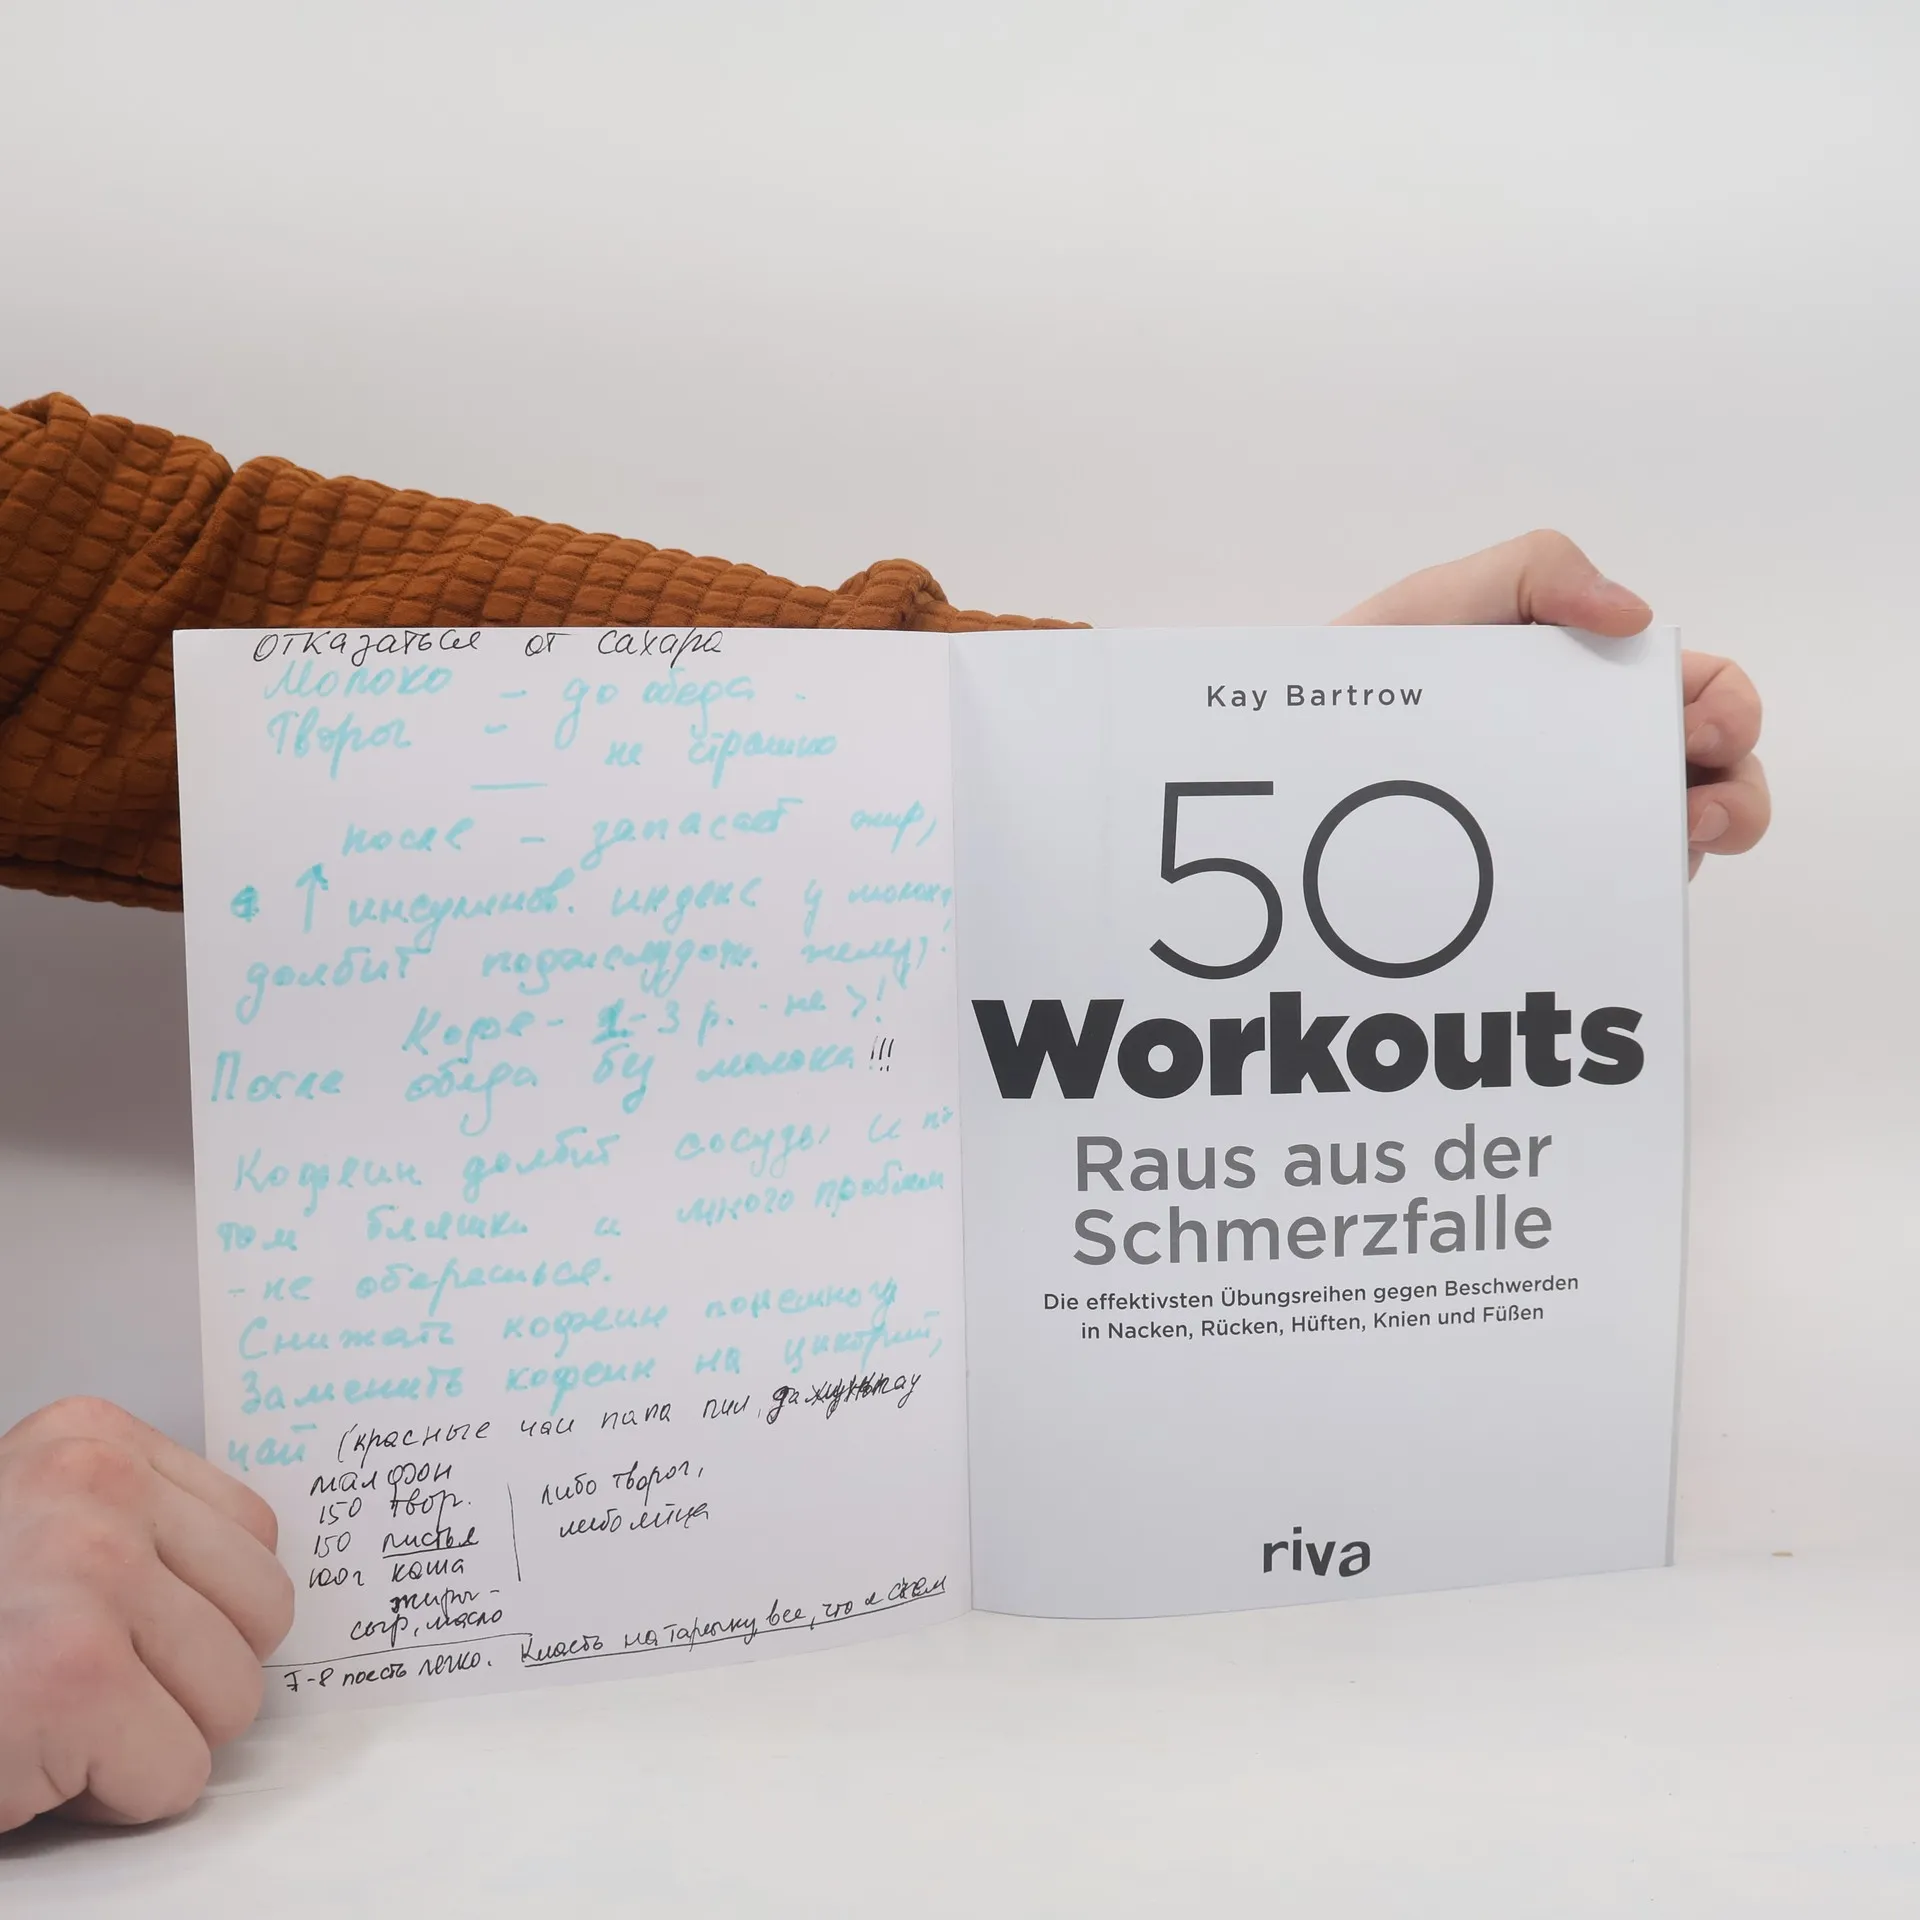 отказаться от сахара
Молоко - до обеда -
Творог - не страшно
после - запасает жир,
↑ инсулинов. индекс у молока
долбит поджелудоч. желез!
Кофе - 2-3 р. - не >!
После обеда бу молока!!!
Кофеин долбит сосуды и по
том бляшки и много проблем
- не оберешься.
Снижать кофеин понемногу
Заменить кофеин на цикорий,
чай (красные чаи папа пил,
малфон
150 твор.
150 листья
100г каша
жиры -
сыр, масло
либо творог,
либо яйца
7-8 поесть легко. Класть на тарелку все, что я съем
Kay Bartrow
50
Workouts
Raus aus der
Schmerzfalle
Die effektivsten Übungsreihen gegen Beschwerden
in Nacken, Rücken, Hüften, Knien und Füßen
riva